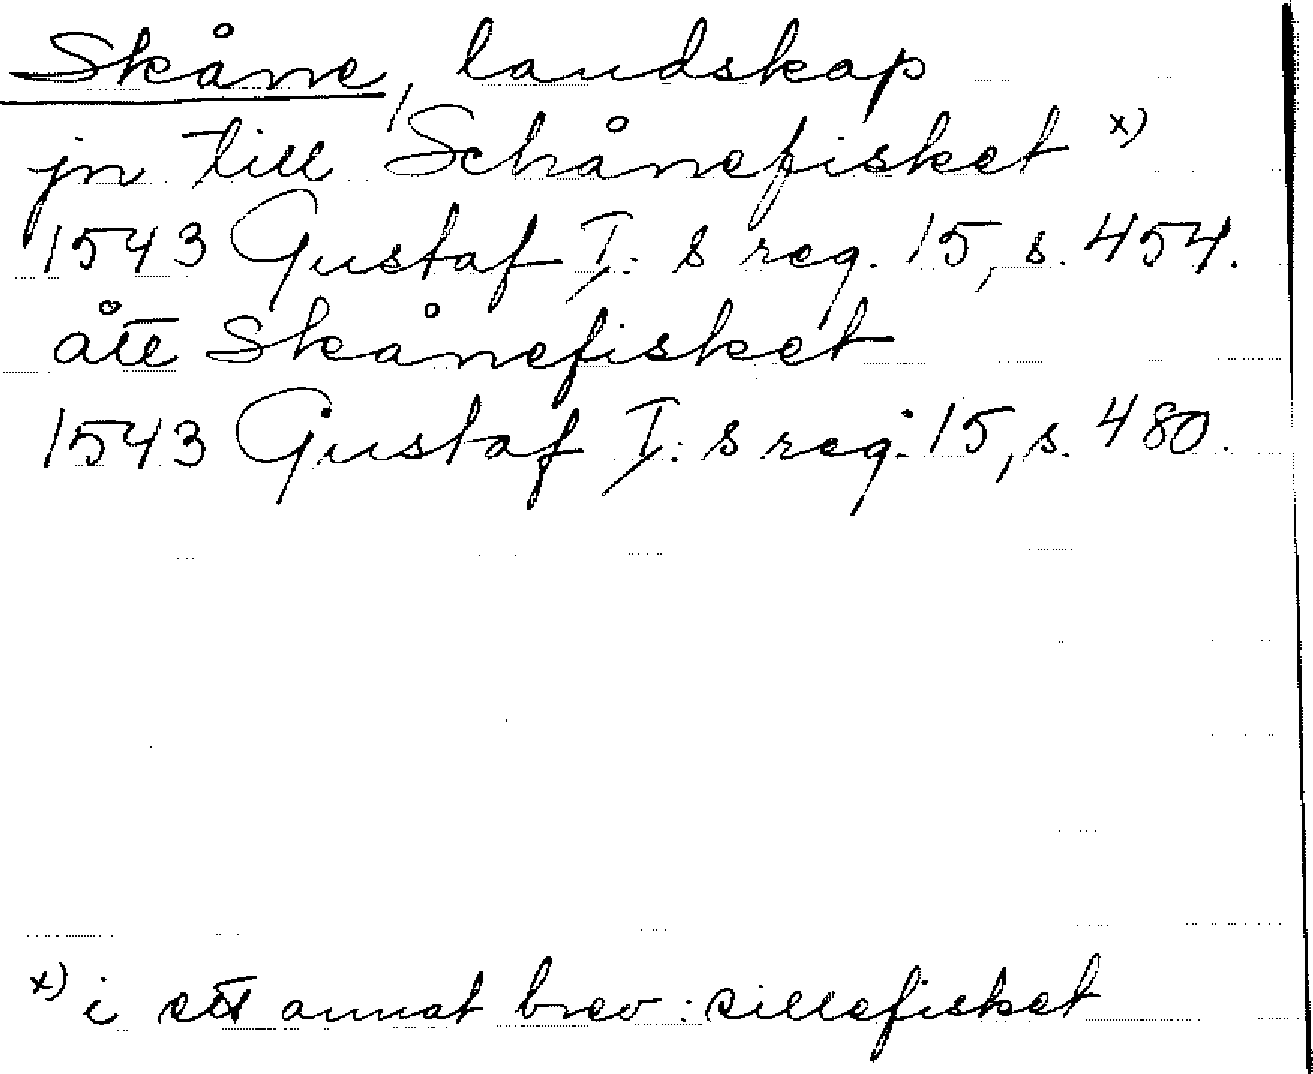 Skåne, landskap
jn till Schånefisket x)
1543 Gustaf I:s reg. 15, s. 454.
ått Skånefisket
1543 Gustaf I:s reg. 15, s. 480.
x) i ett annat brev: sillefisket